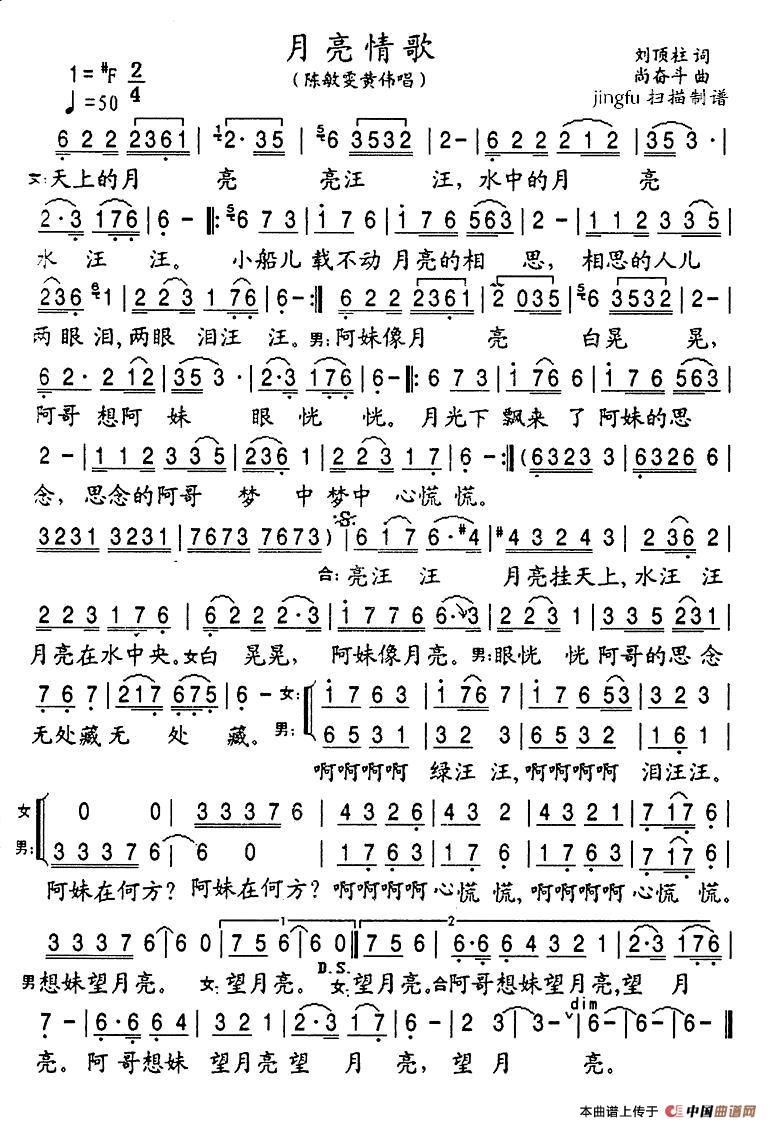 月亮情歌
(陈敏雯黄伟唱)
刘顶柱 词
尚奋斗 曲
jingfu 扫描制谱
1=#F 2/4
♩=50
6 2 2 2361 | 2·35 | 6 3532 | 2- | 6 2 2 2 1 2 | 35 3 · |
女:天上的月 亮 亮汪 汪, 水中的月 亮
2·3 176 | 6 - |: 6 7 3 | 1 7 6 | 1 7 6 563 | 2 - | 1 1 2 3 3 5 |
水 汪 汪。 小船儿 载不动 月亮的相 思, 相思的人儿
236 1 | 2 2 3 1 76 | 6- :| 6 2 2 2361 | 2 035 | 6 3532 | 2- |
两眼泪,两眼 泪汪 汪。男:阿妹像月 亮 白晃 晃,
6 2· 2 12 | 35 3 · | 2·3 176 | 6- |: 6 7 3 | 1 76 6 | 1 7 6 563 |
阿哥 想阿 妹 眼 恍 恍。月光下 飘来 了 阿妹的思
2 - | 1 1 2 3 3 5 | 236 1 | 2 2 3 1 7 | 6 - :| (6323 3 | 6326 6 |
念, 思念的阿哥 梦 中梦中 心慌 慌。
3231 3231 | 7673 7673 ) | 6 17 6·#4 | #4 3 2 4 3 | 2 36 2 |
合:亮汪 汪 月亮挂天上,水汪 汪
2 2 3 1 7 6 | 6 2 2 2·3 | 1 7 7 6 6·3 | 2 2 3 1 | 3 3 5 231 |
月亮在水中央。女白 晃晃, 阿妹像月亮。男:眼恍 恍 阿哥的思念
7 6 7 | 217 675 | 6 - 女: 1 7 6 3 | 1 76 7 | 1 7 6 53 | 1 7 6 |
男: 6 5 3 1 | 3 2 3 | 6 5 3 2 | 1 6 1 |
无处藏无 处 藏。 啊啊啊啊 绿汪 汪,啊啊啊啊 泪汪汪。
女 0 0 | 3 3 3 7 6 | 4 3 2 6 | 4 3 2 | 4 3 2 1 | 7 17 6 |
男: 3 3 3 7 6 | 6 0 | 1 7 6 3 | 1 7 6 | 1 7 6 3 | 7 17 6 |
阿妹在何方? 阿妹在何方? 啊啊啊啊 心慌 慌,啊啊啊啊 心慌 慌。
1 2
3 3 3 7 6 | 6 0 | 7 5 6 | 6 0 || 7 5 6 | 6·6 6 4 3 2 1 | 2·3 176 |
D.S.
男想妹望月亮。 女:望月亮。 女:望月亮。合阿哥想妹望月亮,望 月
dim
7 - | 6·6 6 4 | 3 2 1 | 2·3 1 7 | 6 - | 2 3 | 6- | 6- | 6- ||
亮。阿哥想妹 望月亮望 月 亮, 望 月 亮。
本曲谱上传于 中国曲谱网